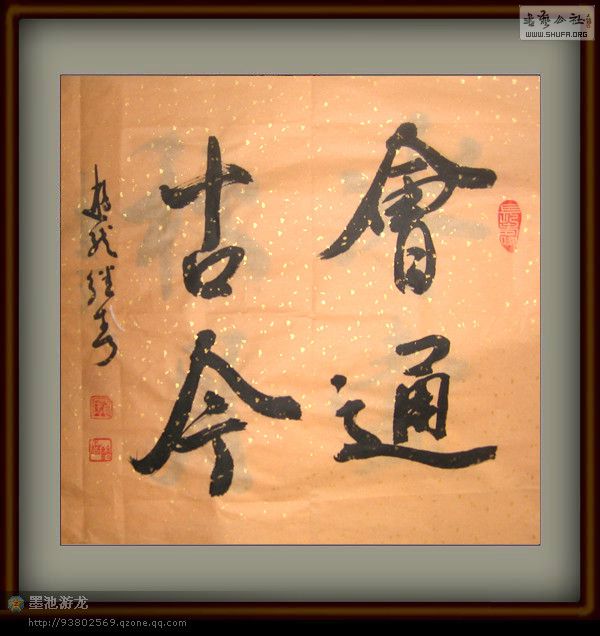 會通
古今
WWW.SHUFA.ORG
墨池游龙
http://93802569.qzone.qq.com